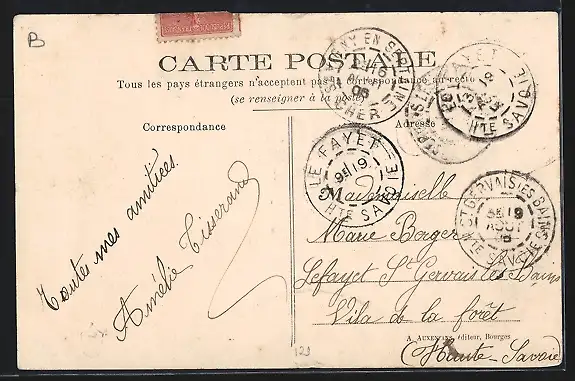 B
CARTE POSTALE
Tous les pays étrangers n'acceptent pas la correspondance au recto
(se renseigner à la poste)
Correspondance
Adresse
Toutes mes amitiés
Amélie Tisserand
Mademoiselle
Marie Berger
Lefayet St Gervais les Bains
Vila de la forêt
A. AUXENFANS, éditeur, Bourges
(Haute-Savoie)
SAVIGNY EN SEPTAINE
CHER
LE FAYET
19
HTE SAVOIE
LE FAYET
HTE SAVOIE
ST GERVAIS-LES-BAINS
19
AOUT
HTE SAVOIE
123